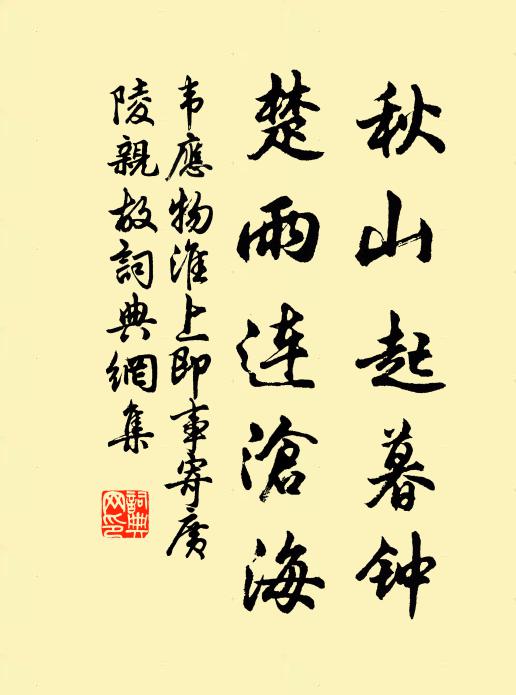 秋山起暮钟
楚雨连滄海
韦應物淮上即事寄广
陵親故詞典網集
詞典
网印